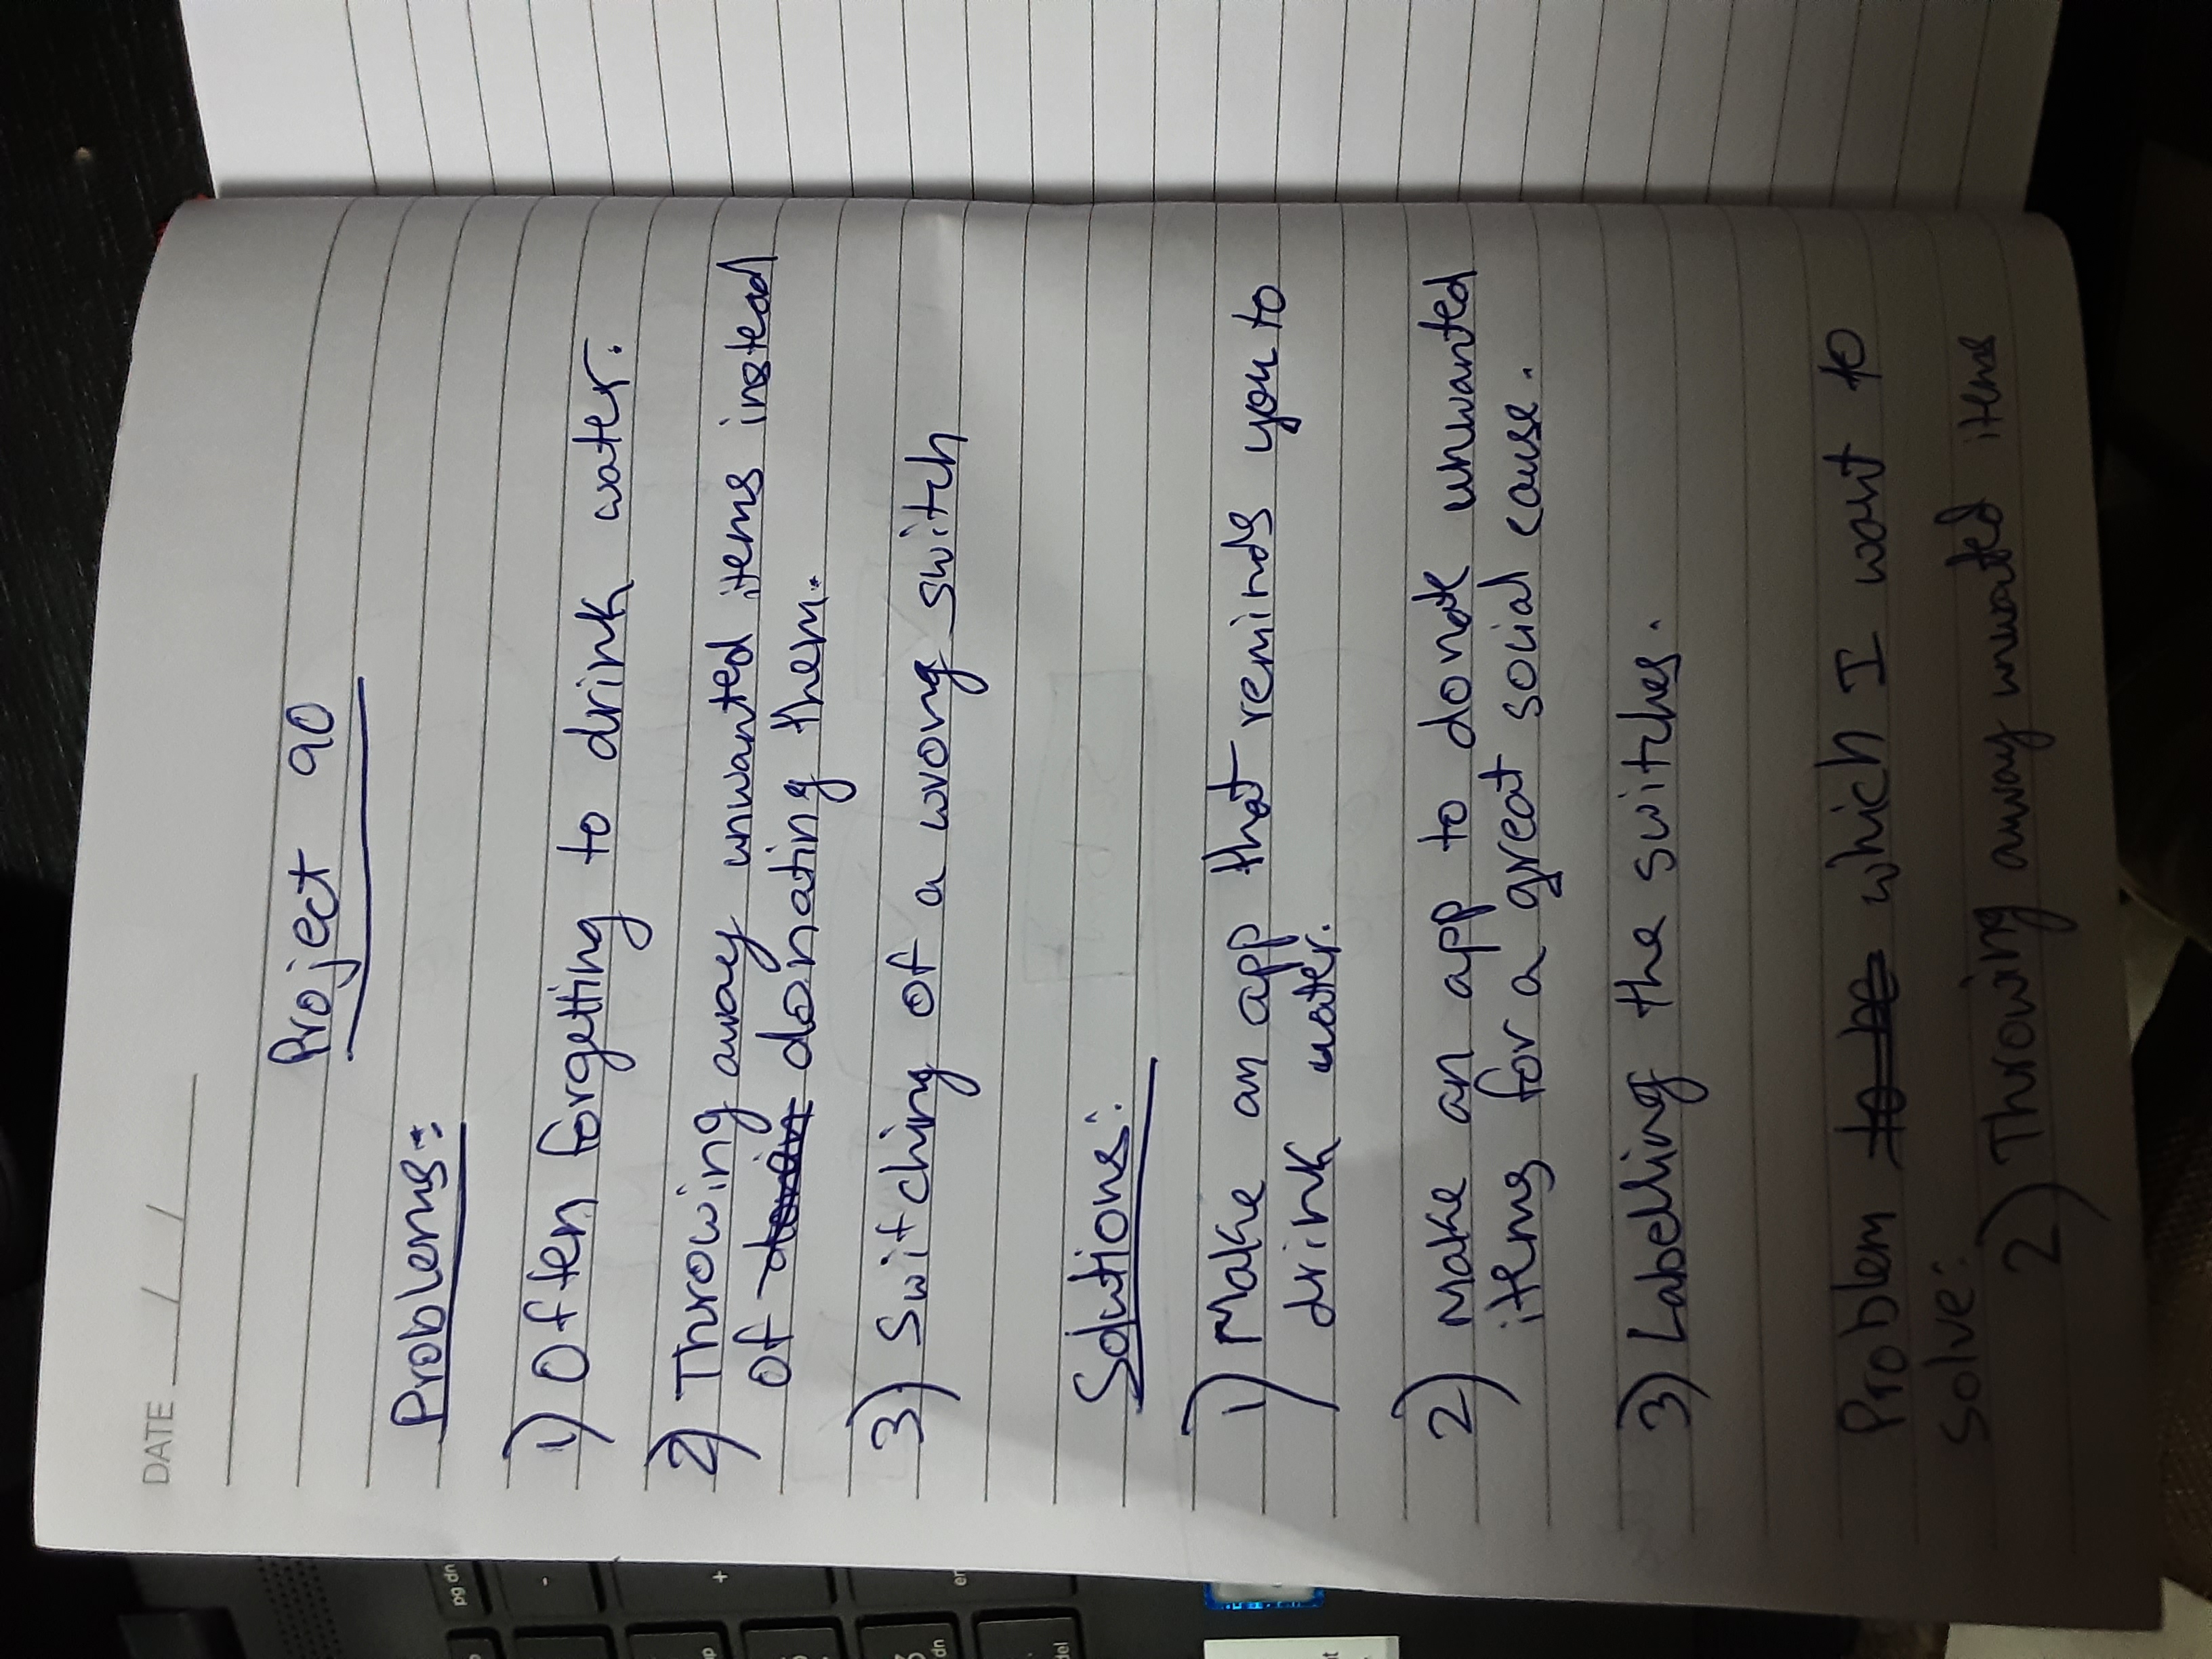 DATE / /
Project 90
Problems:
1) Often forgetting to drink water.
2) Throwing away unwanted items instead
of donating them.
3) Switching of a wrong switch
Solutions:
1) Make an app that reminds you to
drink water.
2) Make an app to donate unwanted
items for a great social cause.
3) Labelling the switches.
Problem to be which I want to
solve:
2) Throwing away unwated items
pg dn
-
+
dn
en
del